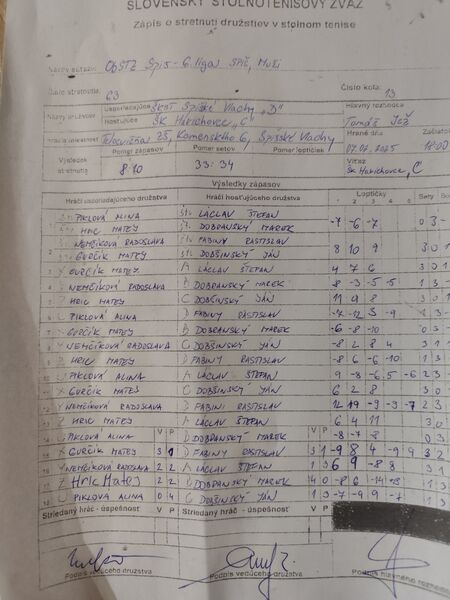 SLOVENSKÝ STOLNOTENISOVÝ ZVÄZ
Zápis o stretnutí družstiev v stolnom tenise
Názov súťaže: ObSTZ Spiš - 6. liga SPIŠ, Muži
Číslo stretnutia: 63 Číslo kola: 13
Usporiadajúce ŠKST Spišské Vlachy „D" Hlavný rozhodca
Názvy družstiev Hosťujúce ŠK Harichovce „C" Tomáš Jež
Telocvičňa ZŠ, Komenského 6, Spišské Vlachy Hrané dňa Začiatok
Výsledok stretnutia Pomer zápasov Pomer setov Pomer loptičiek 18:00
8:10 33:34 Víťaz ŠK Harichovce „C"
Výsledky zápasov
Hráči usporiadajúceho družstva Hráči hosťujúceho družstva Loptičky Sety
1 2 3 4 5
PIKLOVÁ ALINA LACLAV ŠTEFAN -7 -6 -7 0 3
HRIC MATEJ DOBRANSKÝ MAREK
NEMČÍKOVÁ RADOSLAVA FABINY RASTISLAV 8 10 9 3 0
GURČÍK MATEJ DOBŠINSKÝ JÁN
GURČÍK MATEJ A LACLAV ŠTEFAN 4 7 6 3 0
NEMČÍKOVÁ RADOSLAVA B DOBRANSKÝ MAREK 8 -3 -5 -5 1 3
HRIC MATEJ C DOBŠINSKÝ JÁN 11 9 8 3 0
PIKLOVÁ ALINA D FABINY RASTISLAV
GURČÍK MATEJ B DOBRANSKÝ MAREK -6 -8 -10 0 3
NEMČÍKOVÁ RADOSLAVA C DOBŠINSKÝ JÁN -8 2 8 4 3 1
HRIC MATEJ D FABINY RASTISLAV -8 6 -6 -10 1 3
PIKLOVÁ ALINA A LACLAV ŠTEFAN 9 -8 -6 5 -6 2 3
GURČÍK MATEJ C DOBŠINSKÝ JÁN 6 2 8 3 0
NEMČÍKOVÁ RADOSLAVA D FABINI RASTISLAV 2 3
HRIC MATEJ A LACLAV ŠTEFAN 6 4 11 3 0
PIKLOVÁ ALINA V P B DOBRANSKÝ MAREK V P -8 -7 -8 0 3
GURČÍK MATEJ 3 1 D FABINY RASTISLAV 3 1 -9 8 4 -9 -9 2 3
NEMČÍKOVÁ RADOSLAVA 2 2 A LACLAV ŠTEFAN 1 3
HRIC MATEJ 2 2 B DOBRANSKÝ MAREK 4 0 -8 6 -14 -8 1 3
PIKLOVÁ ALINA 0 4 C DOBŠINSKÝ JÁN 1 3 -7 -9 9 -7 1 3
Striedaný hráč - úspešnosť V P Striedaný hráč - úspešnosť V P
Podpis vedúceho družstva Podpis vedúceho družstva Podpis hlavného rozhodcu